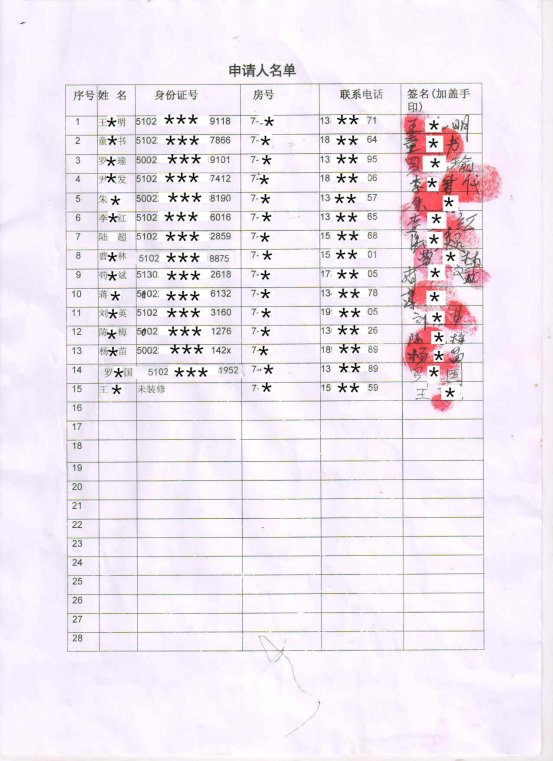 申请人名单
序号 姓 名 身份证号 房号 联系电话 签名(加盖手印)
1 王*明 5102 *** 9118 7-* 13 ** 71 王*明
2 童*书 5102 *** 7866 7-* 18 ** 64 童*书
3 罗*瑜 5002 *** 9101 7-* 13 ** 95 罗*瑜
4 尹*发 5102 *** 7412 7-* 18 ** 06
5 朱* 5002 *** 8190 7-* 13 ** 57 朱*
6 李*红 5102 *** 6016 7-* 13 ** 65 李*红
7 陆*超 5102 *** 2859 7-* 15 ** 68 陆*超
8 曹*林 5102 *** 8875 7-* 15 ** 01 曹*林
9 苟*斌 5130 *** 2618 7-* 17 ** 05 苟*斌
10 蒋* 5102 *** 6132 7-* 13 ** 78 蒋*
11 刘*英 5102 *** 3160 7-* 19 ** 05 刘*英
12 陈*梅 5102 *** 1276 7-* 13 ** 26 陈*梅
13 杨*苗 5002 *** 142x 7-* 18 ** 69 杨*苗
14 罗*国 5102 *** 1952 7-* 13 ** 89 罗*国
15 王* 未装修 7-* 15 ** 59 王*
16
17
18
19
20
21
22
23
24
25
26
27
28